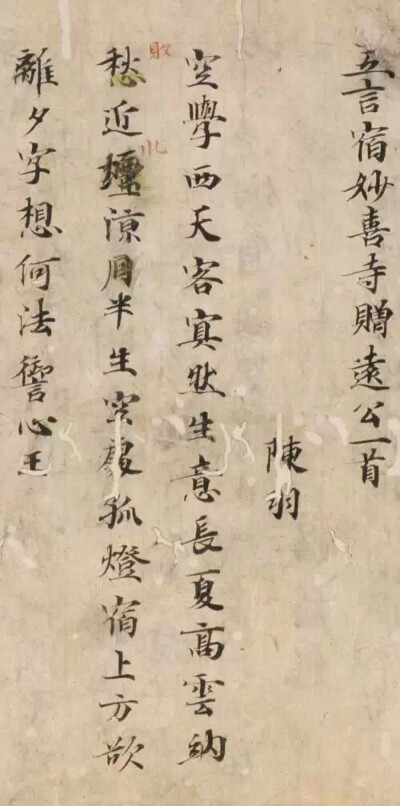 五言宿妙喜寺贈遠公一首
陳羽
空學西天客冥然生意長夏高雲納
愁近壇涼月半生空殿孤燈宿上方欲
離夕字想何法心王